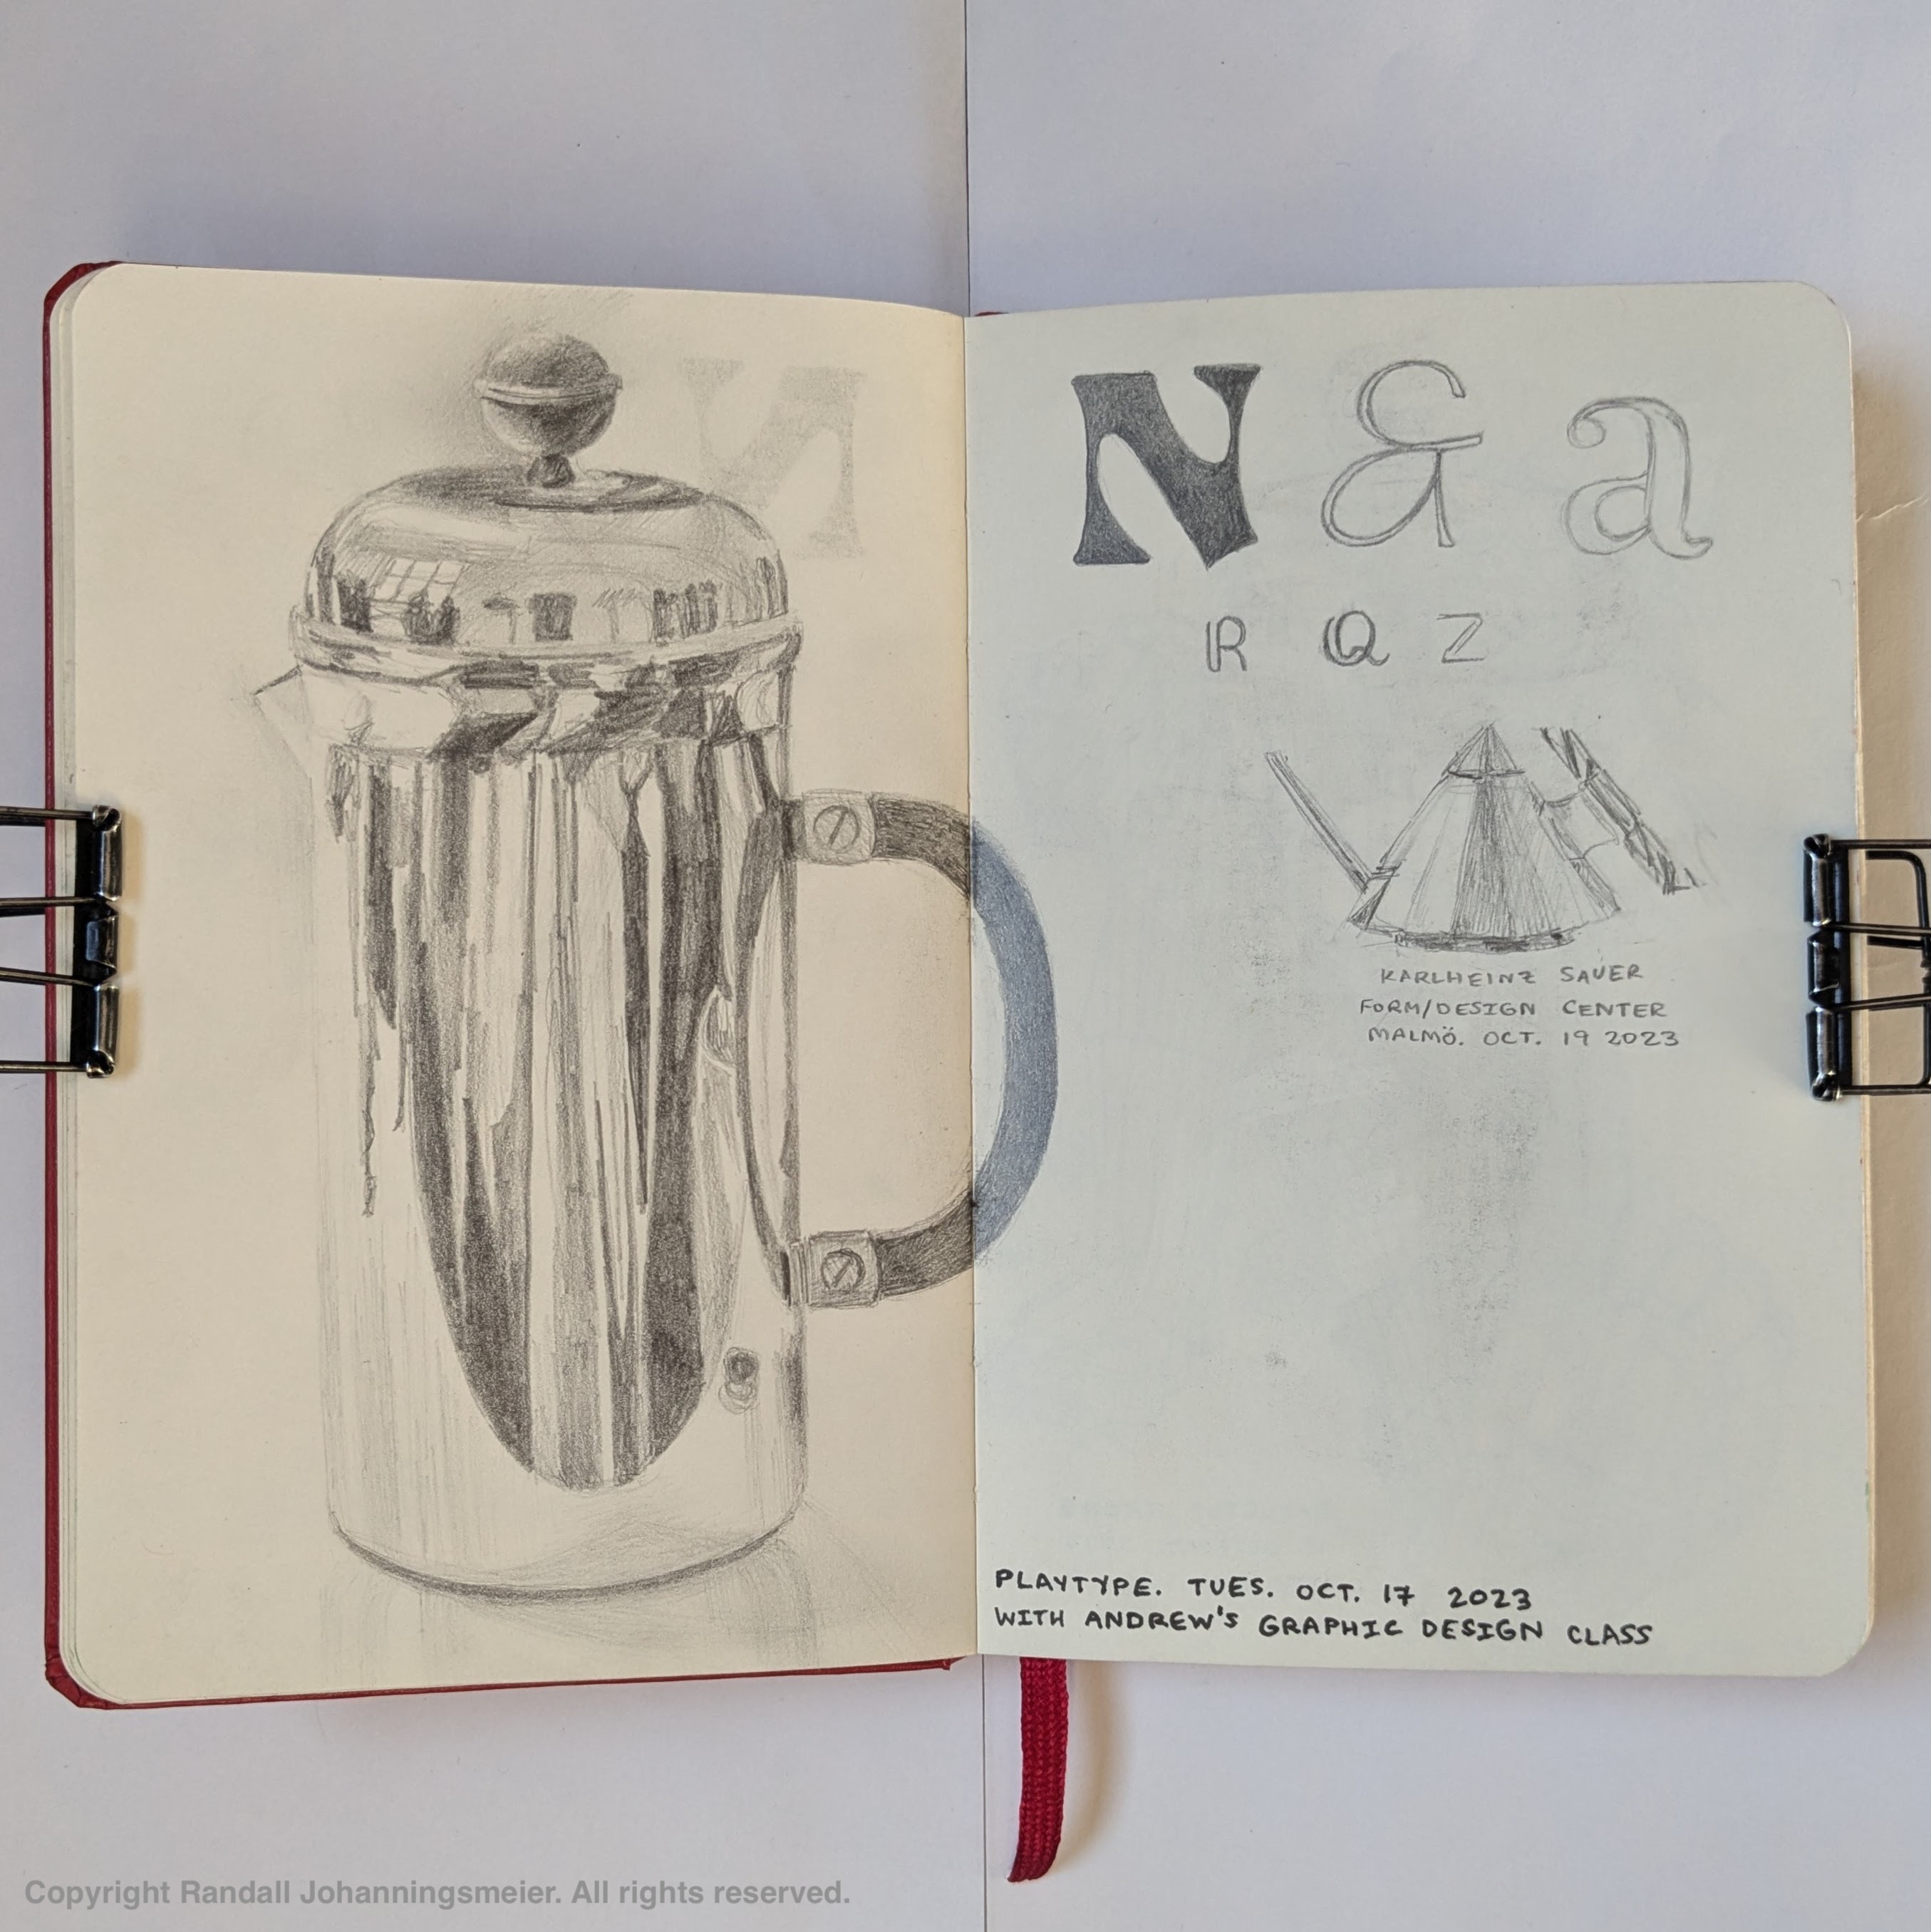 N & a
R Q Z
KARLHEINZ SAUER
FORM/DESIGN CENTER
MALMÖ. OCT. 19 2023
PLAYTYPE. TUES. OCT. 17 2023
WITH ANDREW'S GRAPHIC DESIGN CLASS
Copyright Randall Johanningsmeier. All rights reserved.